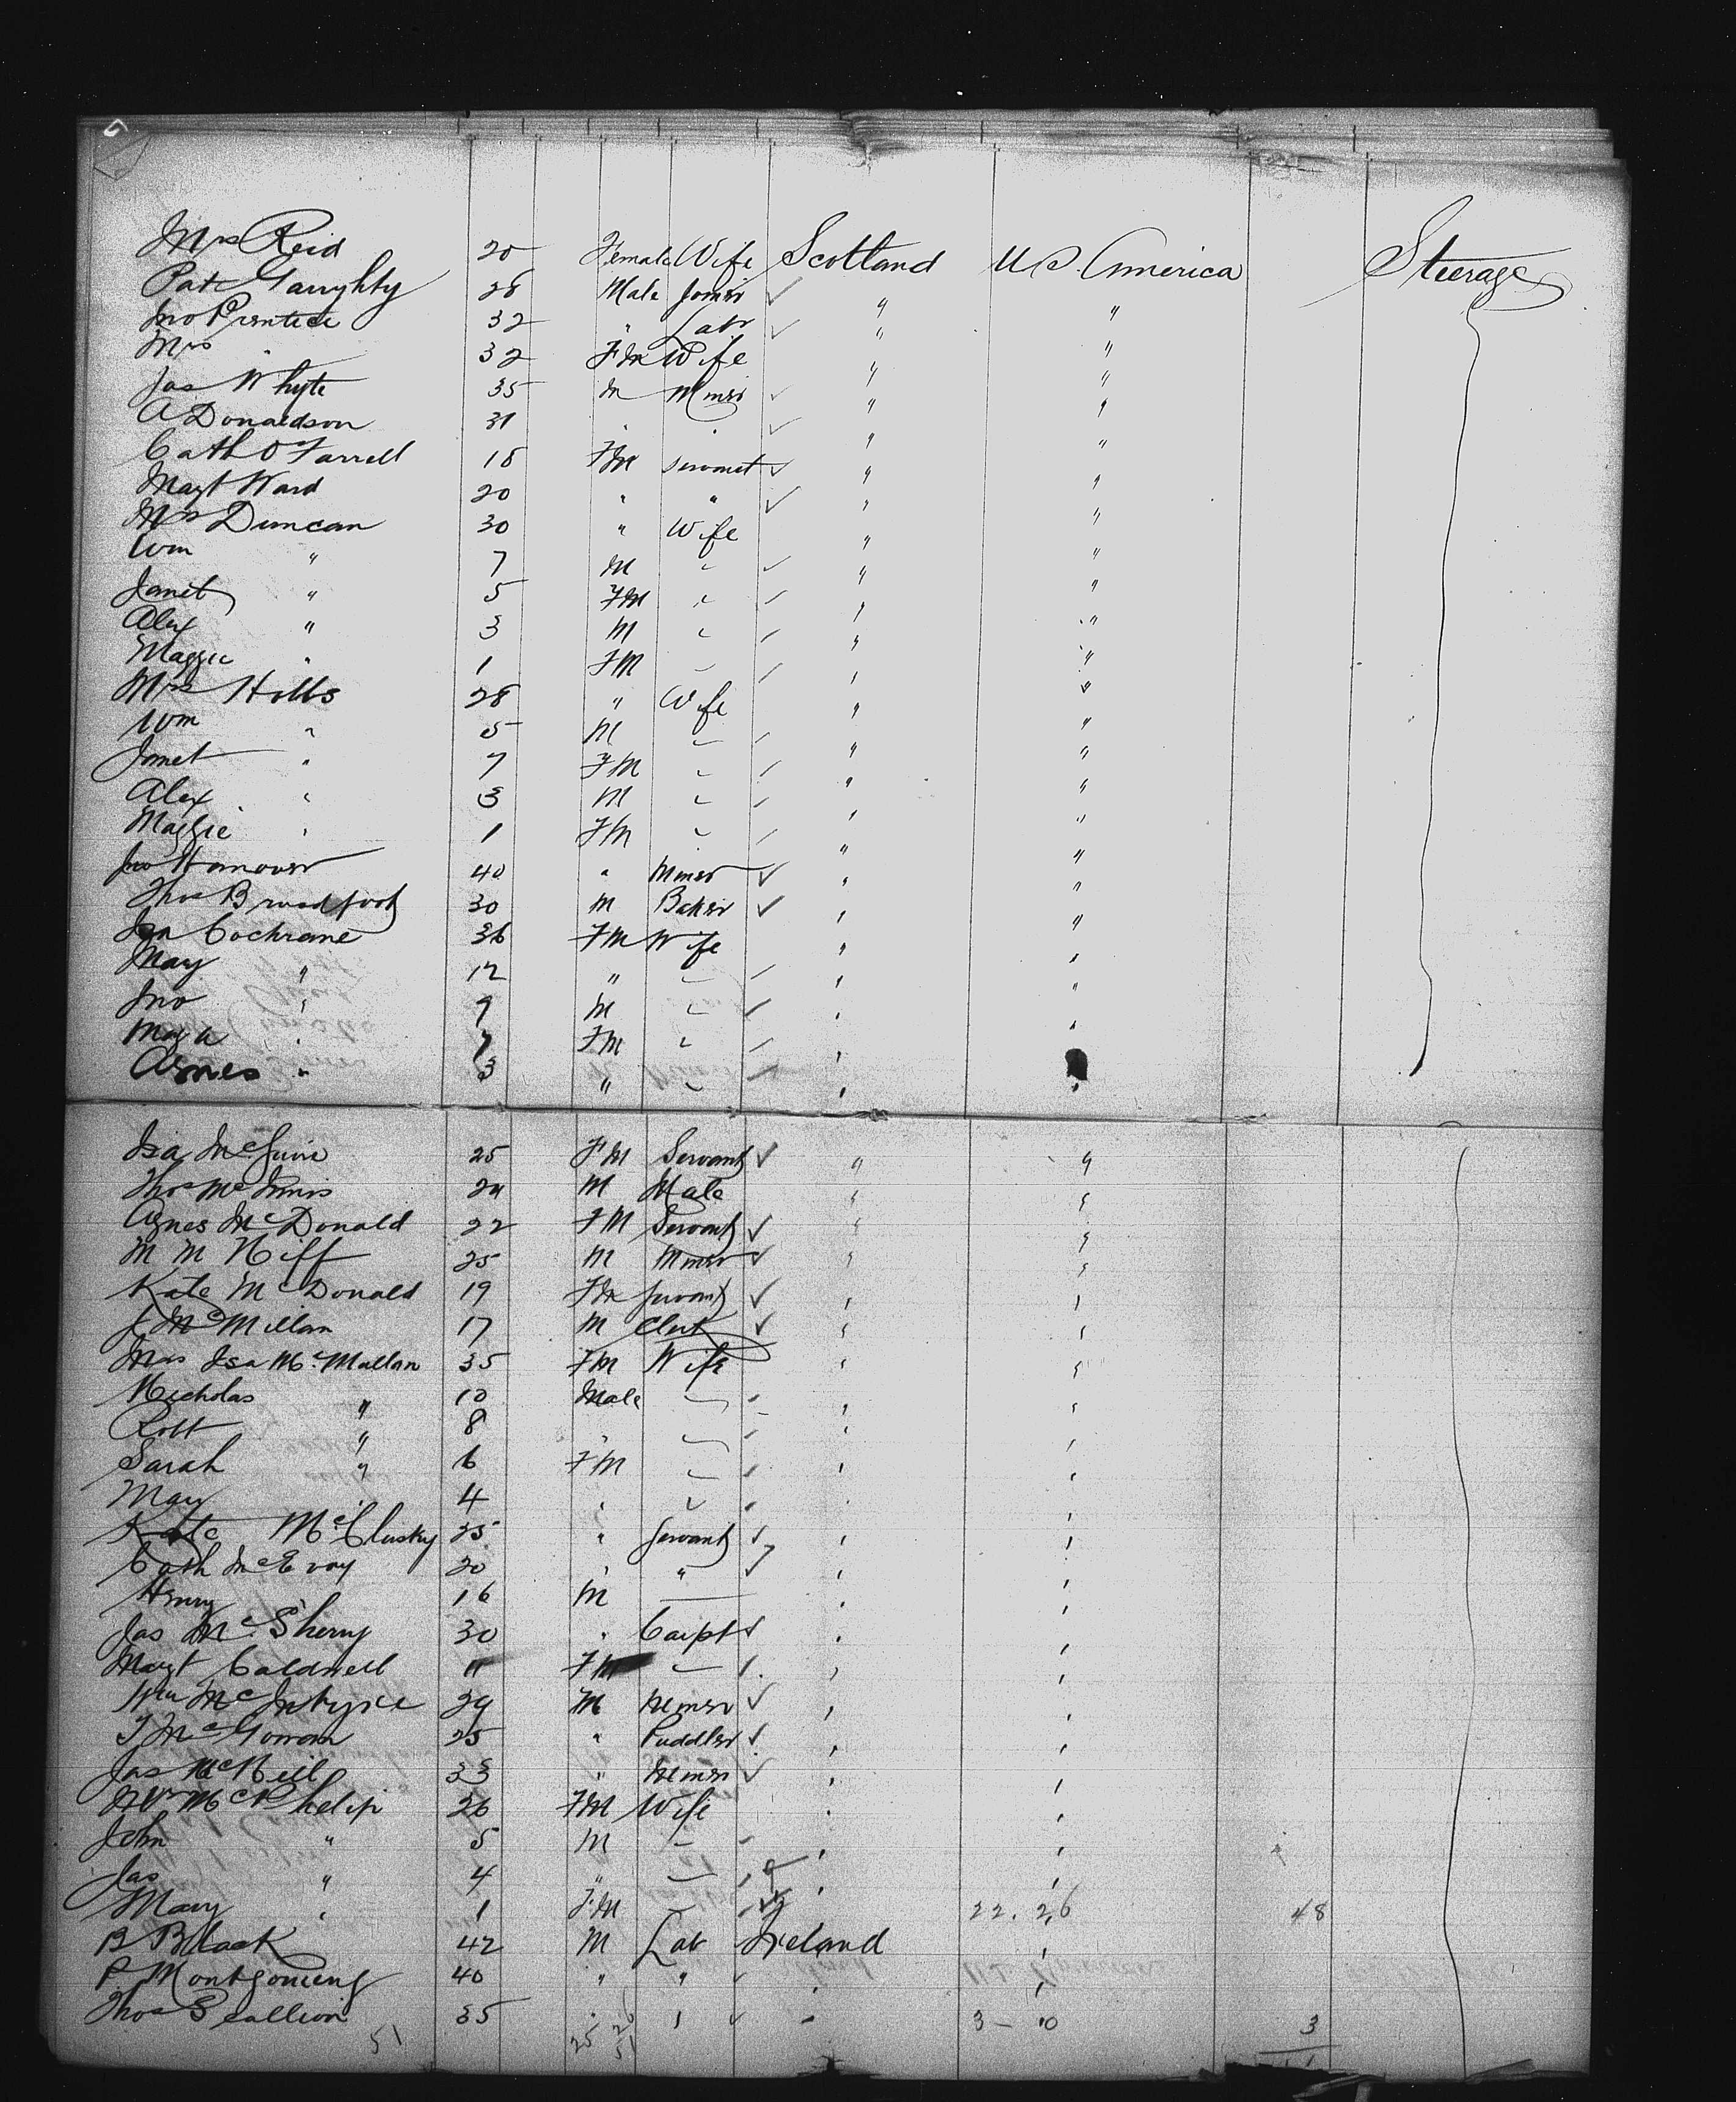 Mrs Reid 20 Female Wife Scotland U S. America Steerage
Pat Garughty 28 Male Joiner ✓ " "
Jno Prentice 32 " Labr ✓ " "
Mrs " 32 Fm Wife " "
Jas Whyte 35 M Miner ✓ " "
A Donaldson 31 " " ✓ " "
Cath O'Farrell 18 Fm Servant ✓ " "
Magt Ward 20 " " ✓ " "
Mrs Duncan 30 " Wife " "
Wm " 7 M " "
Janet " 5 FM " "
Alex " 3 M " "
Maggie " 1 FM " "
Mrs Hobbs 28 " Wife " "
Wm " 5 M " "
Janet " 7 FM " "
Alex " 3 M " "
Maggie " 1 FM " "
Jno Hanover 40 " Miner ✓ " "
Thos Broadfoot 30 M Baker ✓ " "
Isa Cochrane 36 FM Wife " "
Mary " 12 " " "
Jno " 9 M " "
Mag a " 7 FM " "
Agnes " 3 " " "
Isa McGuire 25 FM Servant ✓ " "
Thos McInnis 24 M Male " "
Agnes McDonald 22 FM Servant ✓ " "
M M Niff 25 M Miner ✓ " "
Kate McDonald 19 Fm Servant ✓ " "
J McMillan 17 M Clerk ✓ " "
Mrs Isa McMallan 35 FM Wife " "
Nicholas " 10 Male " "
Robt " 8 " " "
Sarah " 6 FM " "
Mary " 4 " " "
Kate McClusky 25 " Servant ✓ " "
Cath McEvoy 20 " " ✓ " "
Henry 16 M — " "
Jas McSherry 30 " Carpt ✓ " "
Margt Caldwell 11 FM ✓ " "
Wm McIntyre 29 M Miner ✓ " "
T McGowan 25 " Puddler ✓ " "
Jas McNeil 33 " Miner ✓ " "
McPhelip 26 FM Wife " "
John " 5 M " "
Jas " 4 " " "
Mary " 1 FM 22. 26 48
B Black 42 M Lab Ireland "
P Montgomery 40 " " ✓ " "
Thos Scallion 35 " " ✓ " 3 - 0 3
51 25 26 51